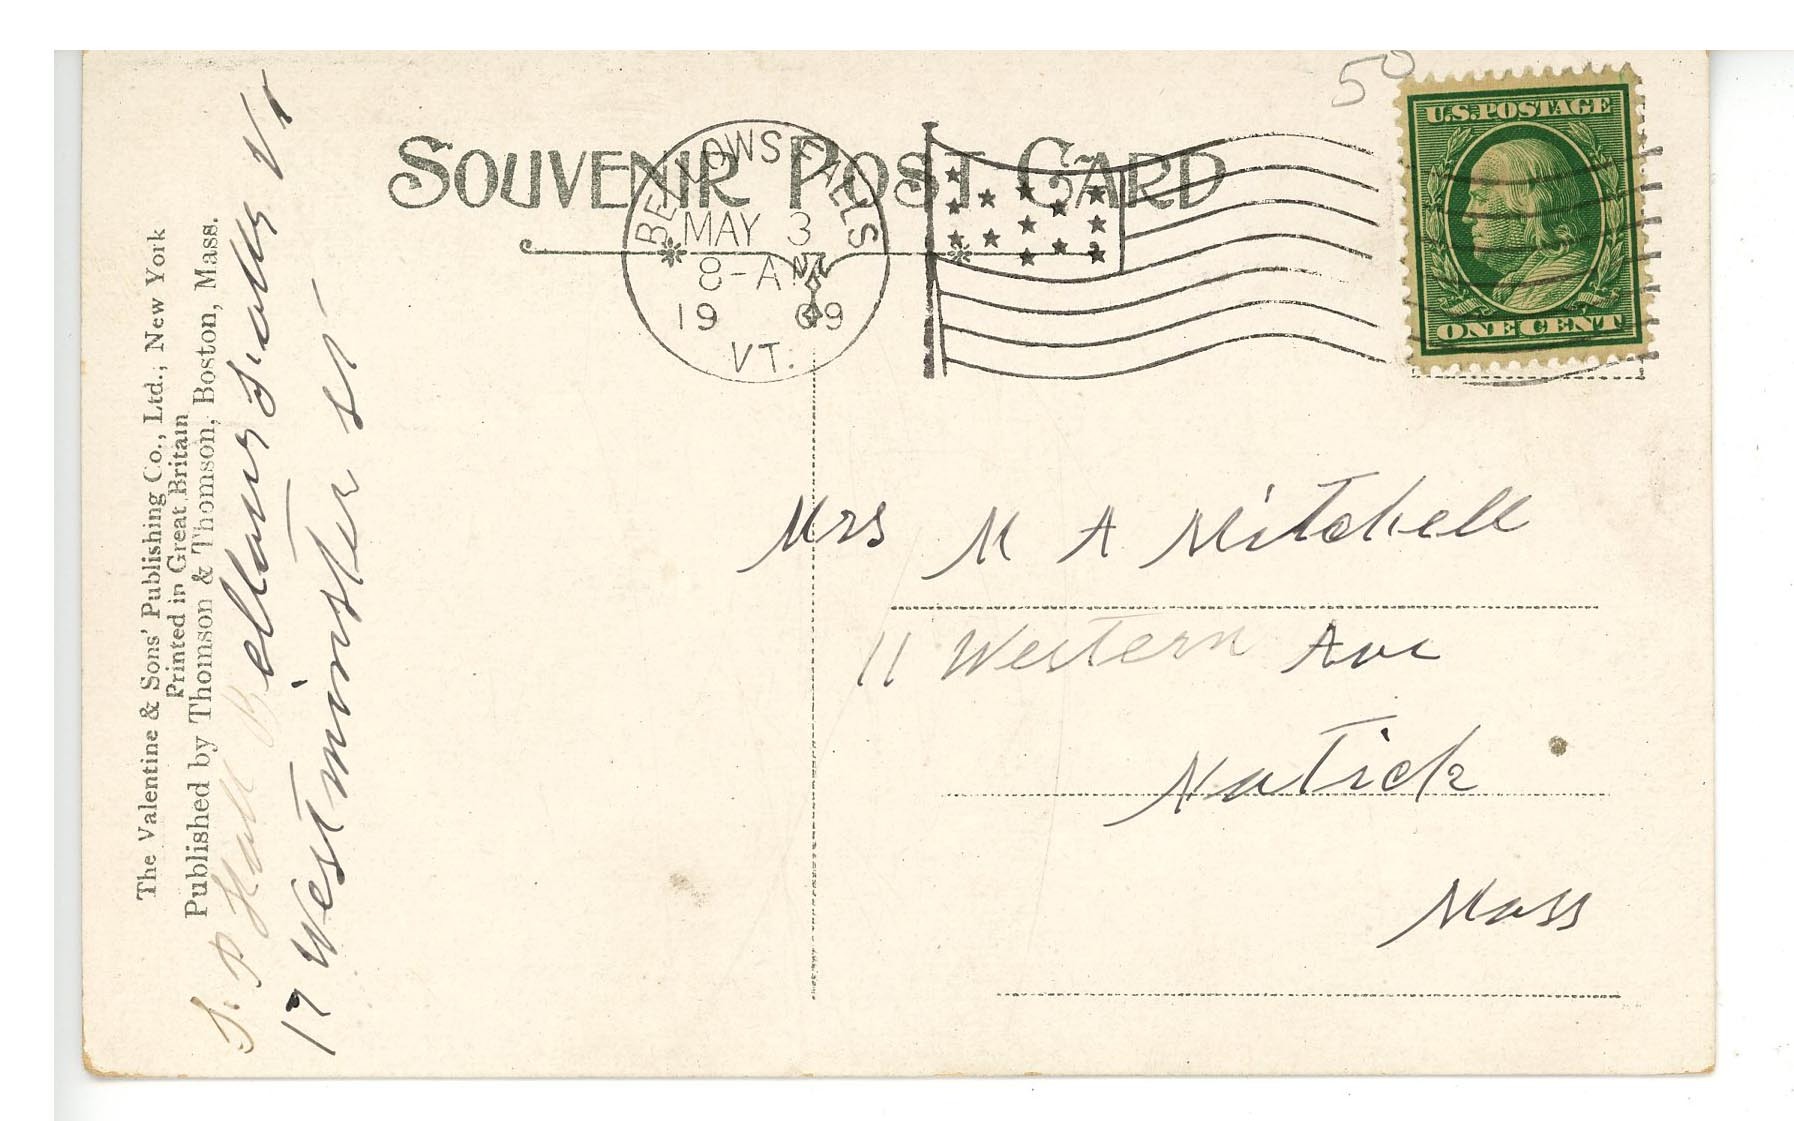 50
U.S.POSTAGE
ONE CENT
SOUVENIR POST CARD
BELLOWS FALLS
MAY 3
8-AM
1909
VT.
The Valentine & Sons' Publishing Co., Ltd., New York
Printed in Great Britain
Published by Thomson & Thomson, Boston, Mass.
S. P Hall Bellows Falls Vt
17 Westminster st
Mrs M A Mitchell
11 Western Ave
Natick
Mass